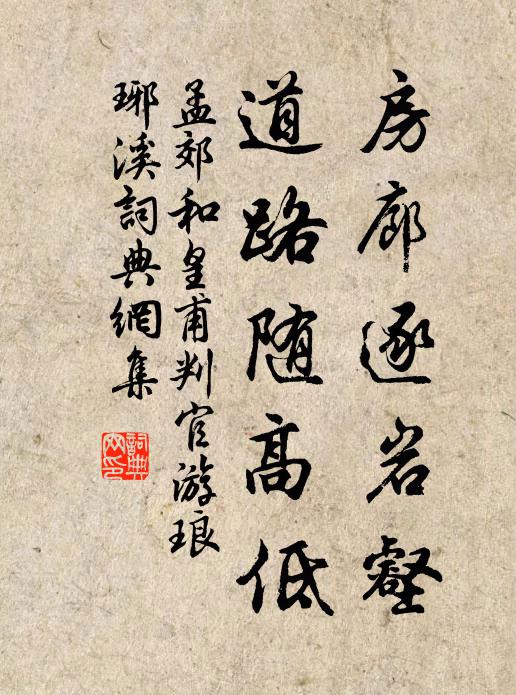 房廊逐岩壑
道路随高低
孟郊和皇甫判官游琅
琊溪詞典網集
詞典
网印